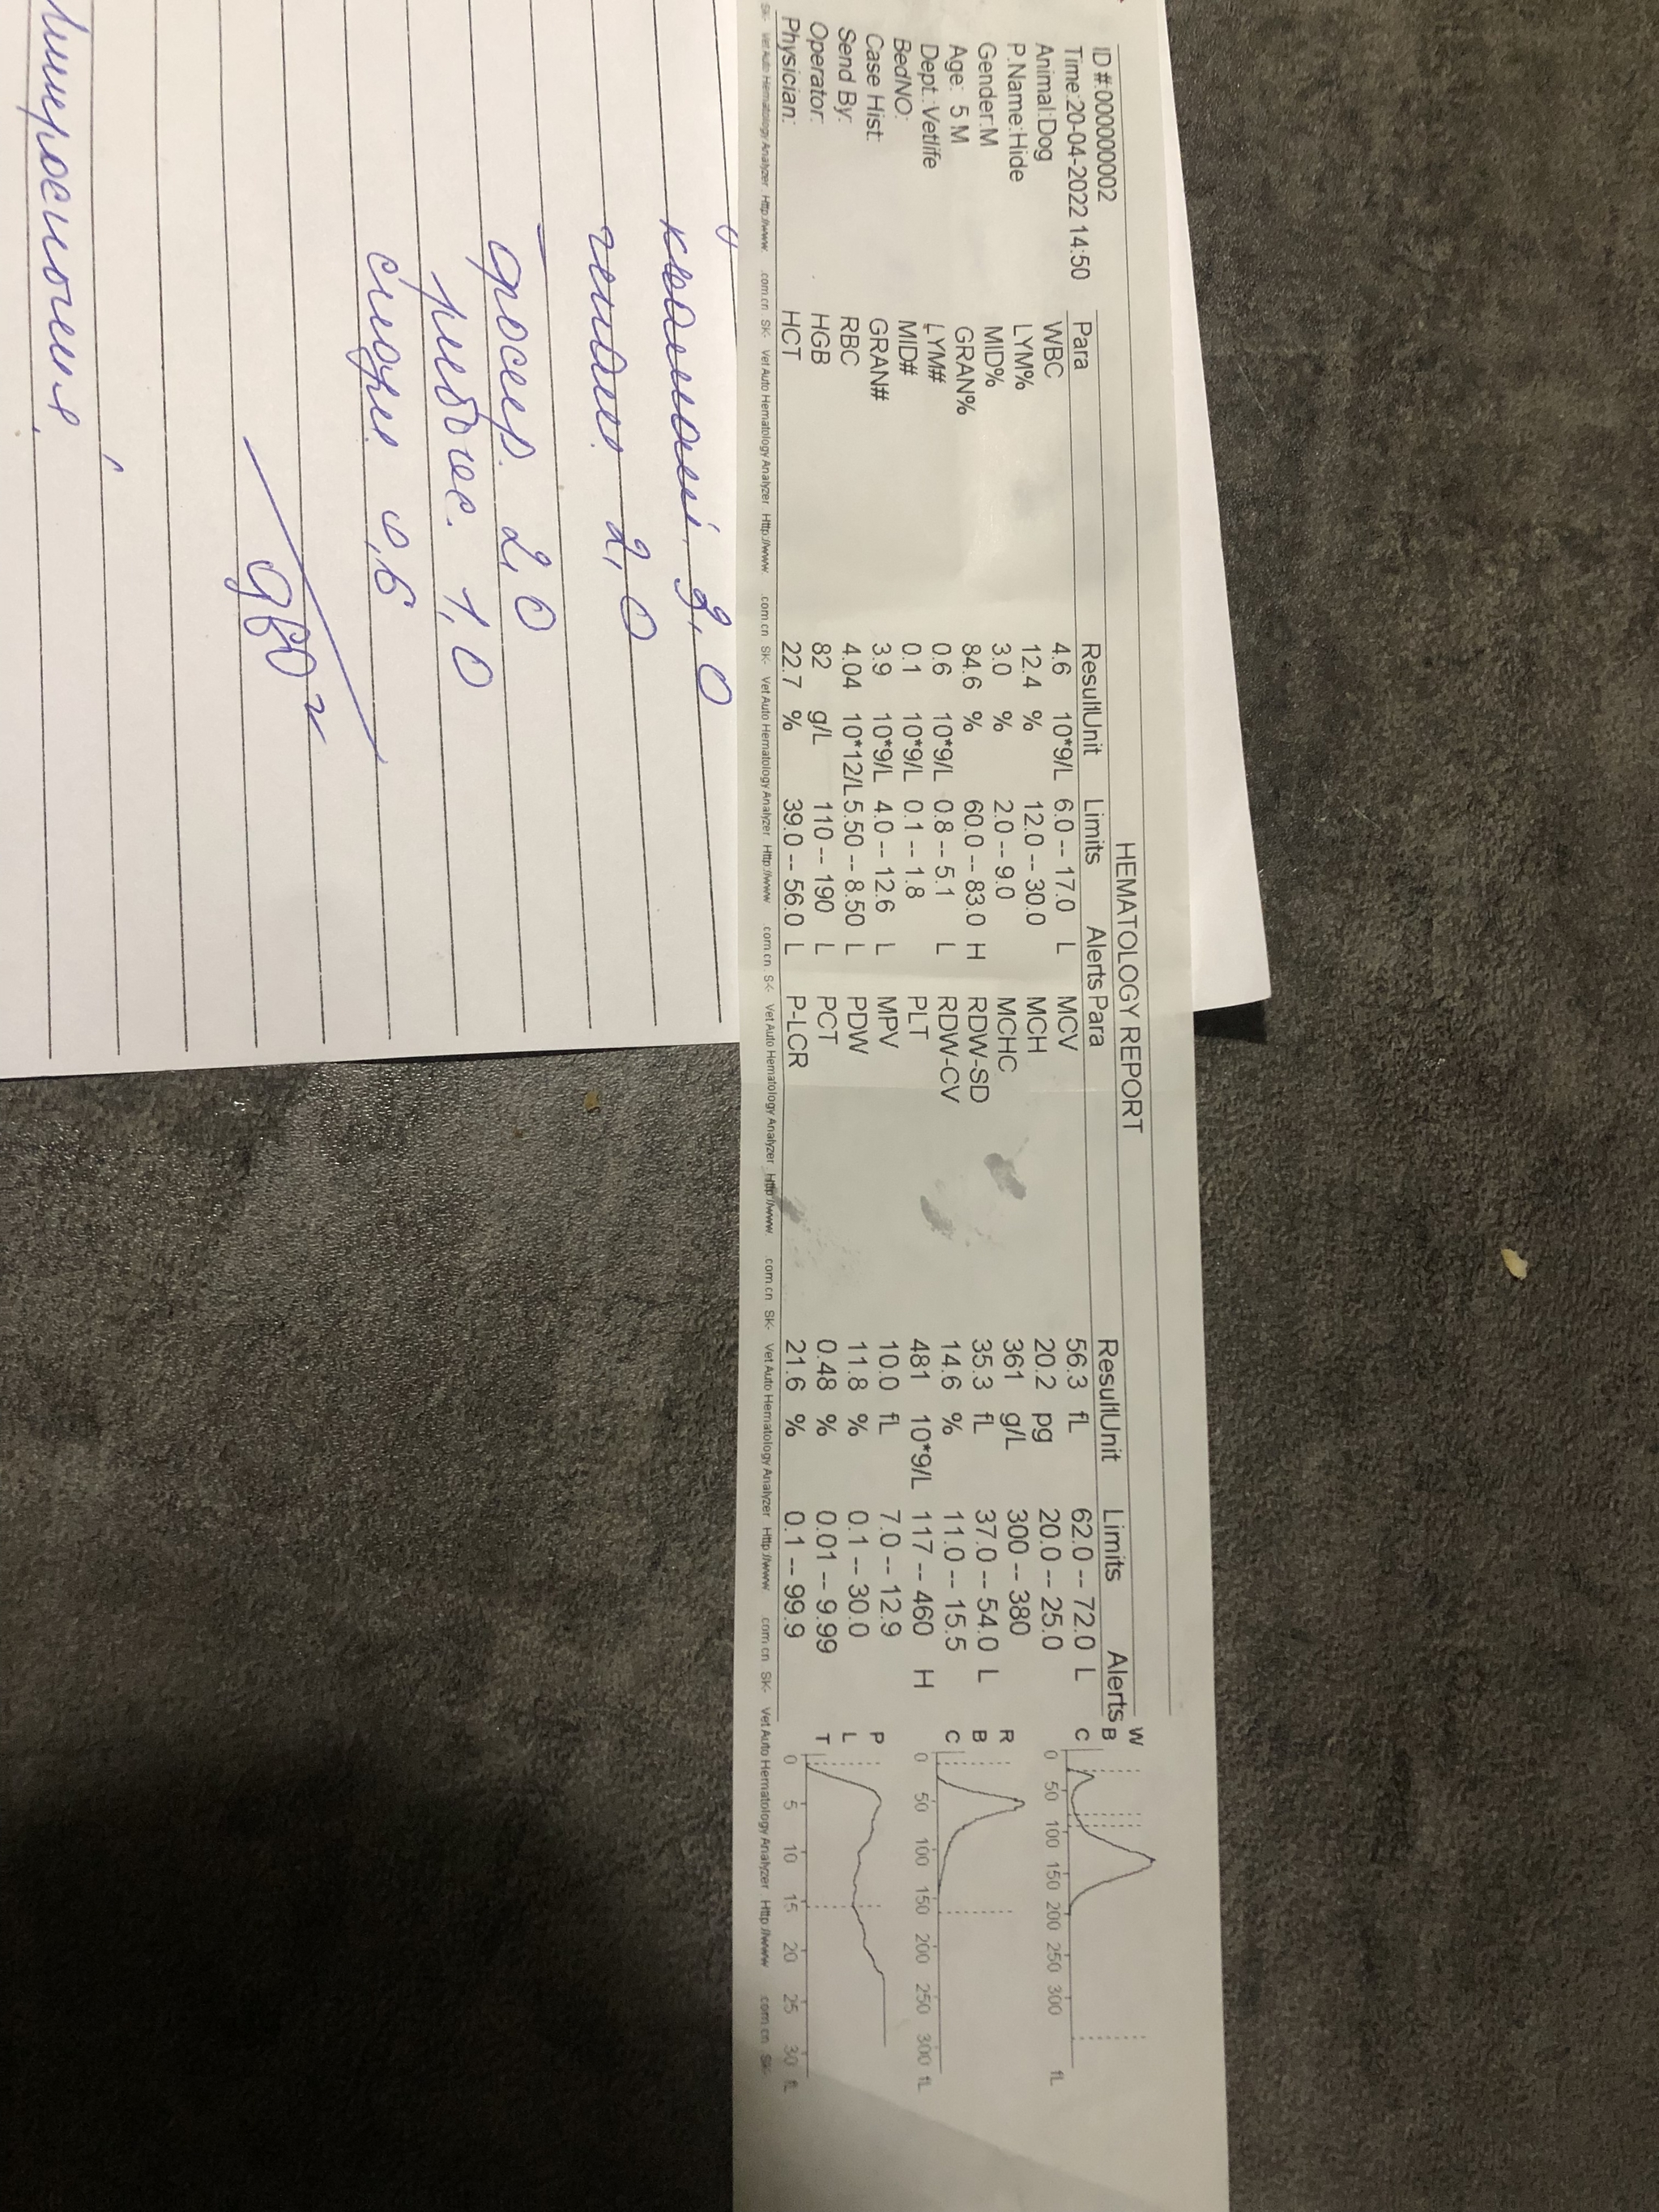 HEMATOLOGY REPORT
ID #:000000002
Time:20-04-2022 14:50
Animal:Dog
P.Name:Hide
Gender:M
Age: 5 M
Dept.:Vetlife
BedNO:
Case Hist:
Send By:
Operator:
Physician:
Para ResultUnit Limits Alerts Para ResultUnit Limits Alerts
WBC 4.6 10*9/L 6.0 -- 17.0 L MCV 56.3 fL 62.0 -- 72.0 L
LYM% 12.4 % 12.0 -- 30.0 MCH 20.2 pg 20.0 -- 25.0
MID% 3.0 % 2.0 -- 9.0 MCHC 361 g/L 300 -- 380
GRAN% 84.6 % 60.0 -- 83.0 H RDW-SD 35.3 fL 37.0 -- 54.0 L
LYM# 0.6 10*9/L 0.8 -- 5.1 L RDW-CV 14.6 % 11.0 -- 15.5
MID# 0.1 10*9/L 0.1 -- 1.8 PLT 481 10*9/L 117 -- 460 H
GRAN# 3.9 10*9/L 4.0 -- 12.6 L MPV 10.0 fL 7.0 -- 12.9
RBC 4.04 10*12/L 5.50 -- 8.50 L PDW 11.8 % 0.1 -- 30.0
HGB 82 g/L 110 -- 190 L PCT 0.48 % 0.01 -- 9.99
HCT 22.7 % 39.0 -- 56.0 L P-LCR 21.6 % 0.1 -- 99.9
W
B
C
0 50 100 150 200 250 300 fL
R
B
C
0 50 100 150 200 250 300 fL
P
L
T
0 5 10 15 20 25 30 fL
SK- Vet Auto Hematology Analyzer Http://www. .com.cn SK- Vet Auto Hematology Analyzer Http://www. .com.cn SK- Vet Auto Hematology Analyzer Http://www .com.cn SK- Vet Auto Hematology Analyzer Http://www. .com.cn SK- Vet Auto Hematology Analyzer Http://www .com.cn SK- Vet Auto Hematology Analyzer Http://www .com.cn SK-
2,0
2,0
2,0
1,0
0,6